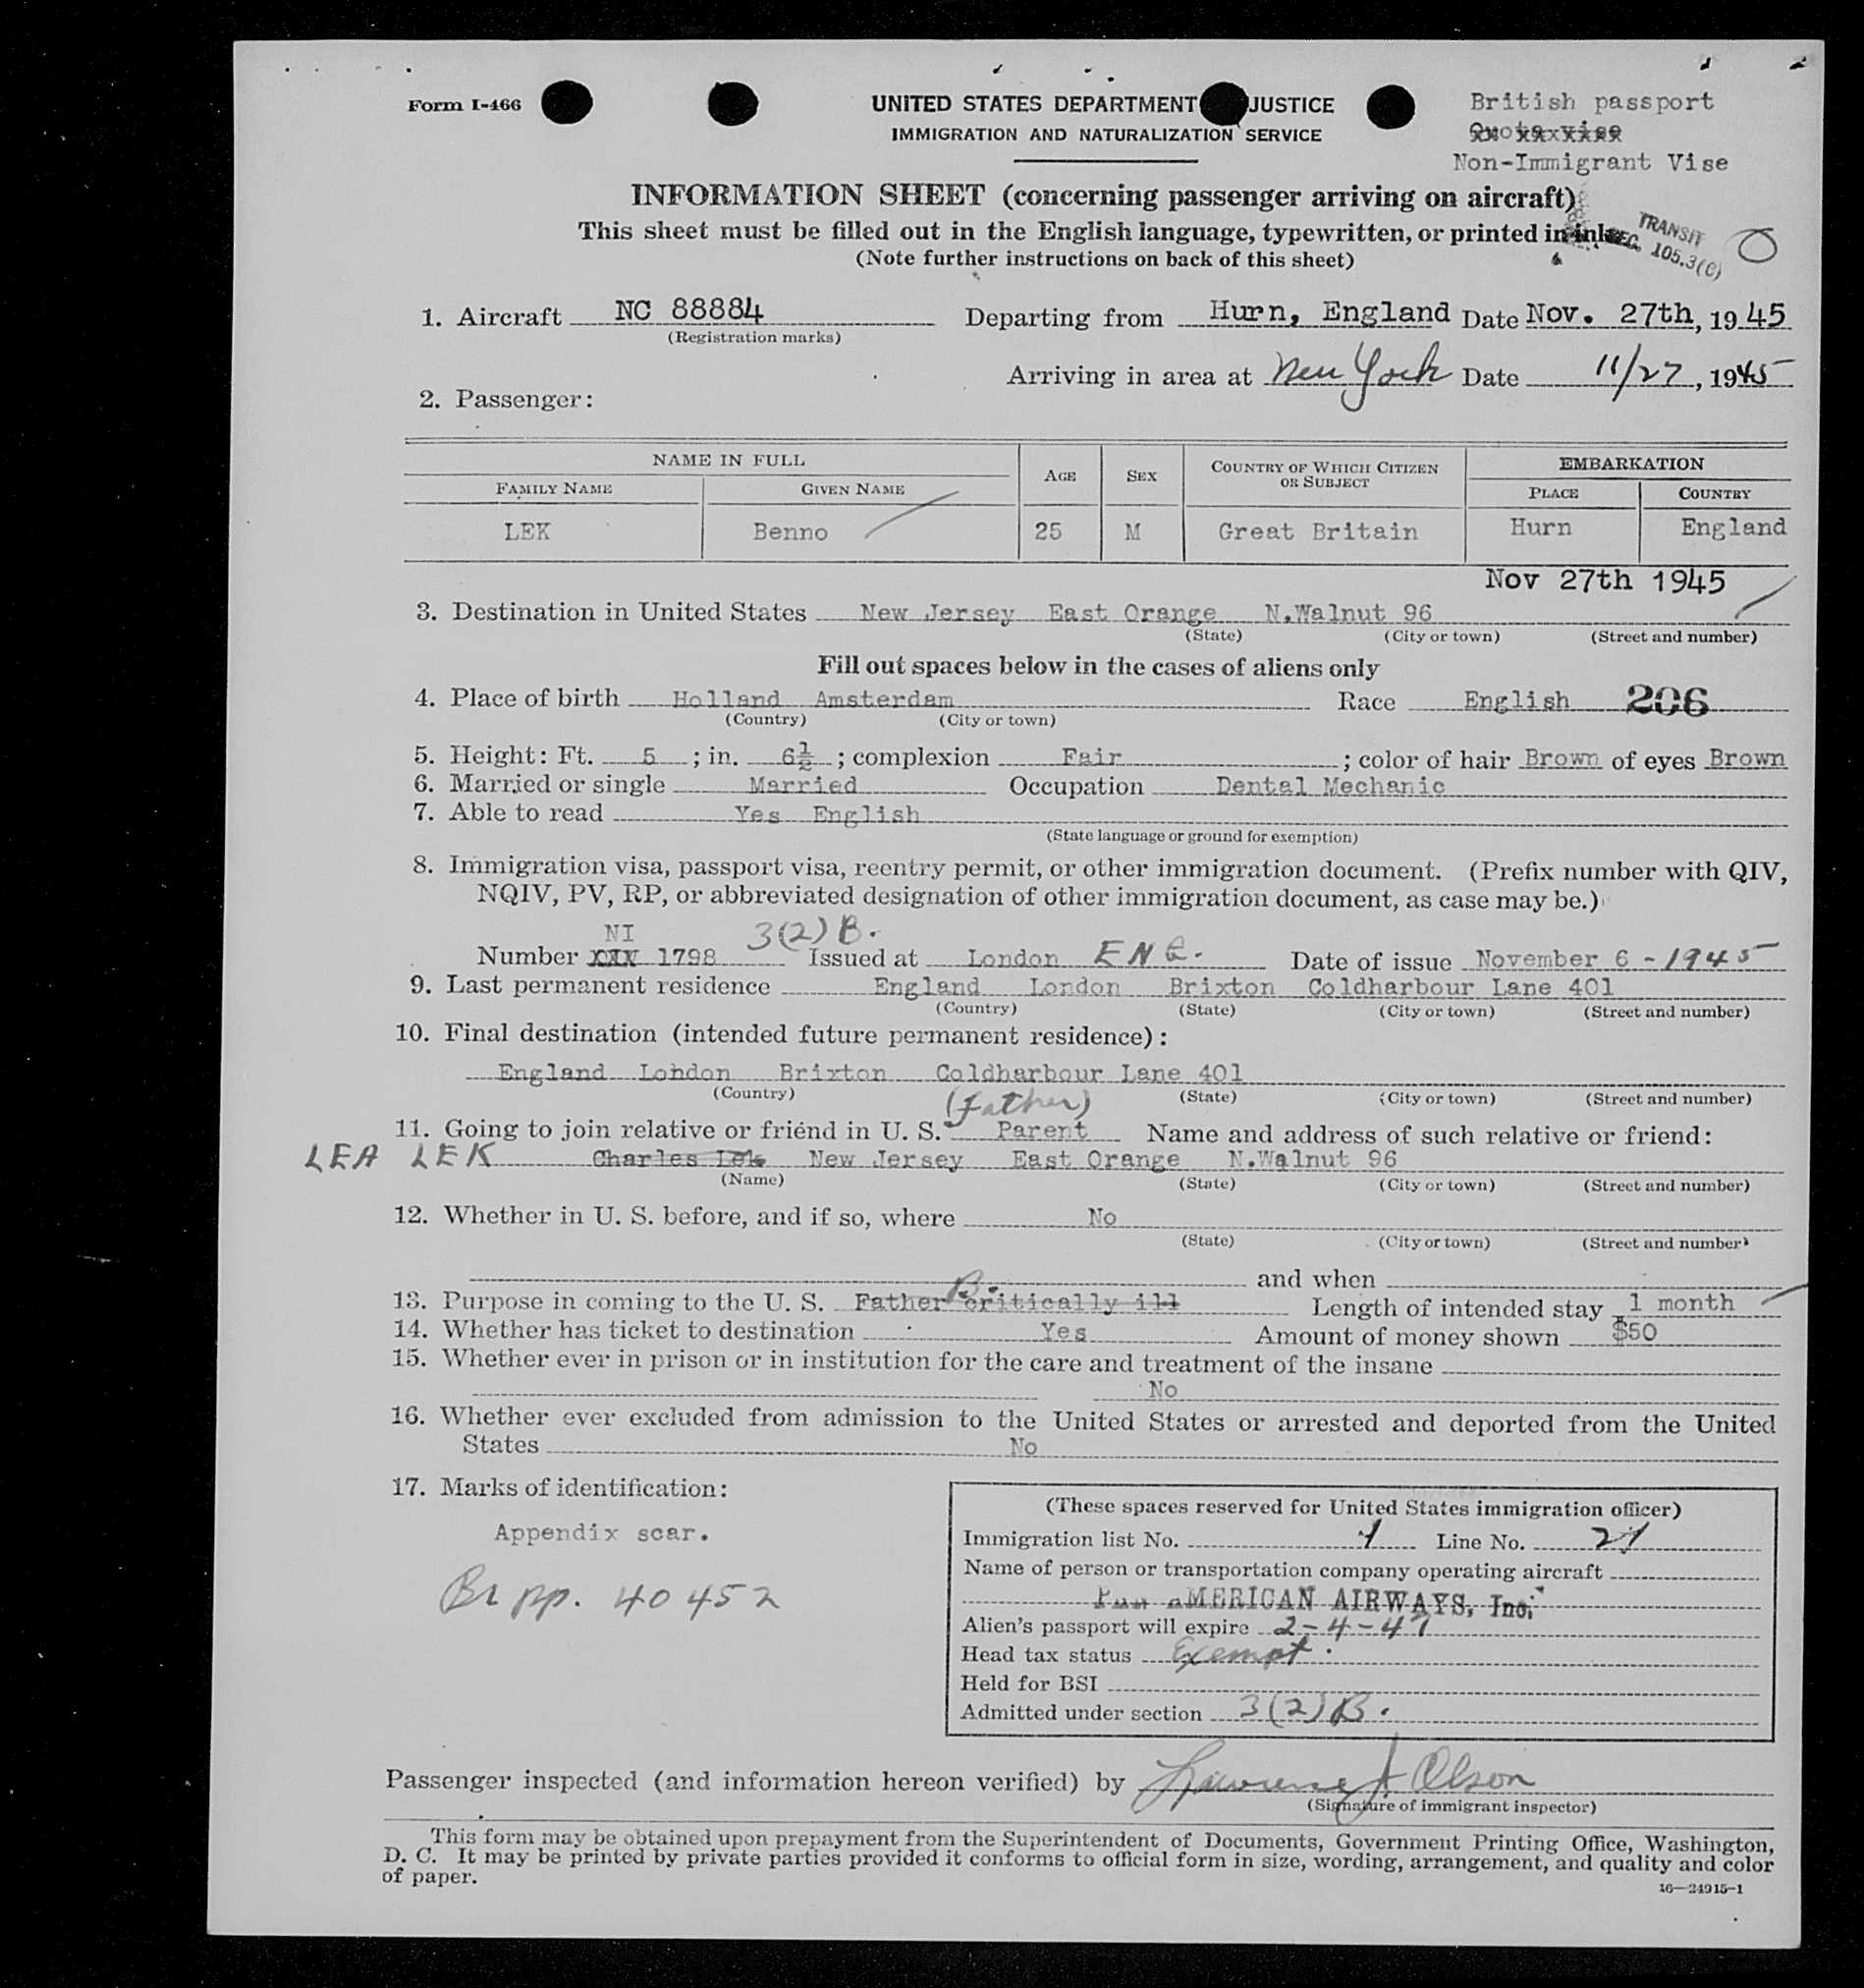 Form I-466
UNITED STATES DEPARTMENT JUSTICE
IMMIGRATION AND NATURALIZATION SERVICE
British passport
Quota vise
Non-Immigrant Vise
INFORMATION SHEET (concerning passenger arriving on aircraft)
This sheet must be filled out in the English language, typewritten, or printed in ink
(Note further instructions on back of this sheet)
TRANSIT
SEC. 105.3(6)
1. Aircraft NC 88884 Departing from Hurn, England Date Nov. 27th, 1945
(Registration marks)
Arriving in area at New York Date 11/27, 1945
2. Passenger:
NAME IN FULL AGE SEX COUNTRY OF WHICH CITIZEN OR SUBJECT EMBARKATION
FAMILY NAME GIVEN NAME PLACE COUNTRY
LEK Benno 25 M Great Britain Hurn England
Nov 27th 1945
3. Destination in United States New Jersey East Orange N.Walnut 96
(State) (City or town) (Street and number)
Fill out spaces below in the cases of aliens only
4. Place of birth Holland Amsterdam Race English 206
(Country) (City or town)
5. Height: Ft. 5 ; in. 6½ ; complexion Fair ; color of hair Brown of eyes Brown
6. Married or single Married Occupation Dental Mechanic
7. Able to read Yes English
(State language or ground for exemption)
8. Immigration visa, passport visa, reentry permit, or other immigration document. (Prefix number with QIV,
NQIV, PV, RP, or abbreviated designation of other immigration document, as case may be.)
NI 3(2)B.
Number 1798 Issued at London ENG. Date of issue November 6 - 1945
9. Last permanent residence England London Brixton Coldharbour Lane 401
(Country) (State) (City or town) (Street and number)
10. Final destination (intended future permanent residence):
England London Brixton Coldharbour Lane 401
(Country) (State) (City or town) (Street and number)
(Father)
11. Going to join relative or friend in U. S. Parent Name and address of such relative or friend:
LEA LEK Charles Lek New Jersey East Orange N.Walnut 96
(Name) (State) (City or town) (Street and number)
12. Whether in U. S. before, and if so, where No
(State) (City or town) (Street and number)
and when
B.
13. Purpose in coming to the U. S. Father critically ill Length of intended stay 1 month
14. Whether has ticket to destination Yes Amount of money shown $50
15. Whether ever in prison or in institution for the care and treatment of the insane
No
16. Whether ever excluded from admission to the United States or arrested and deported from the United
States No
17. Marks of identification:
Appendix scar.
Br pp. 40452
(These spaces reserved for United States immigration officer)
Immigration list No. 1 Line No. 21
Name of person or transportation company operating aircraft
Pan AMERICAN AIRWAYS, Inc.
Alien's passport will expire 2-4-47
Head tax status Exempt.
Held for BSI
Admitted under section 3(2)B.
Passenger inspected (and information hereon verified) by Lawrence J. Olson
(Signature of immigrant inspector)
This form may be obtained upon prepayment from the Superintendent of Documents, Government Printing Office, Washington,
D. C. It may be printed by private parties provided it conforms to official form in size, wording, arrangement, and quality and color
of paper.
16—24915-1